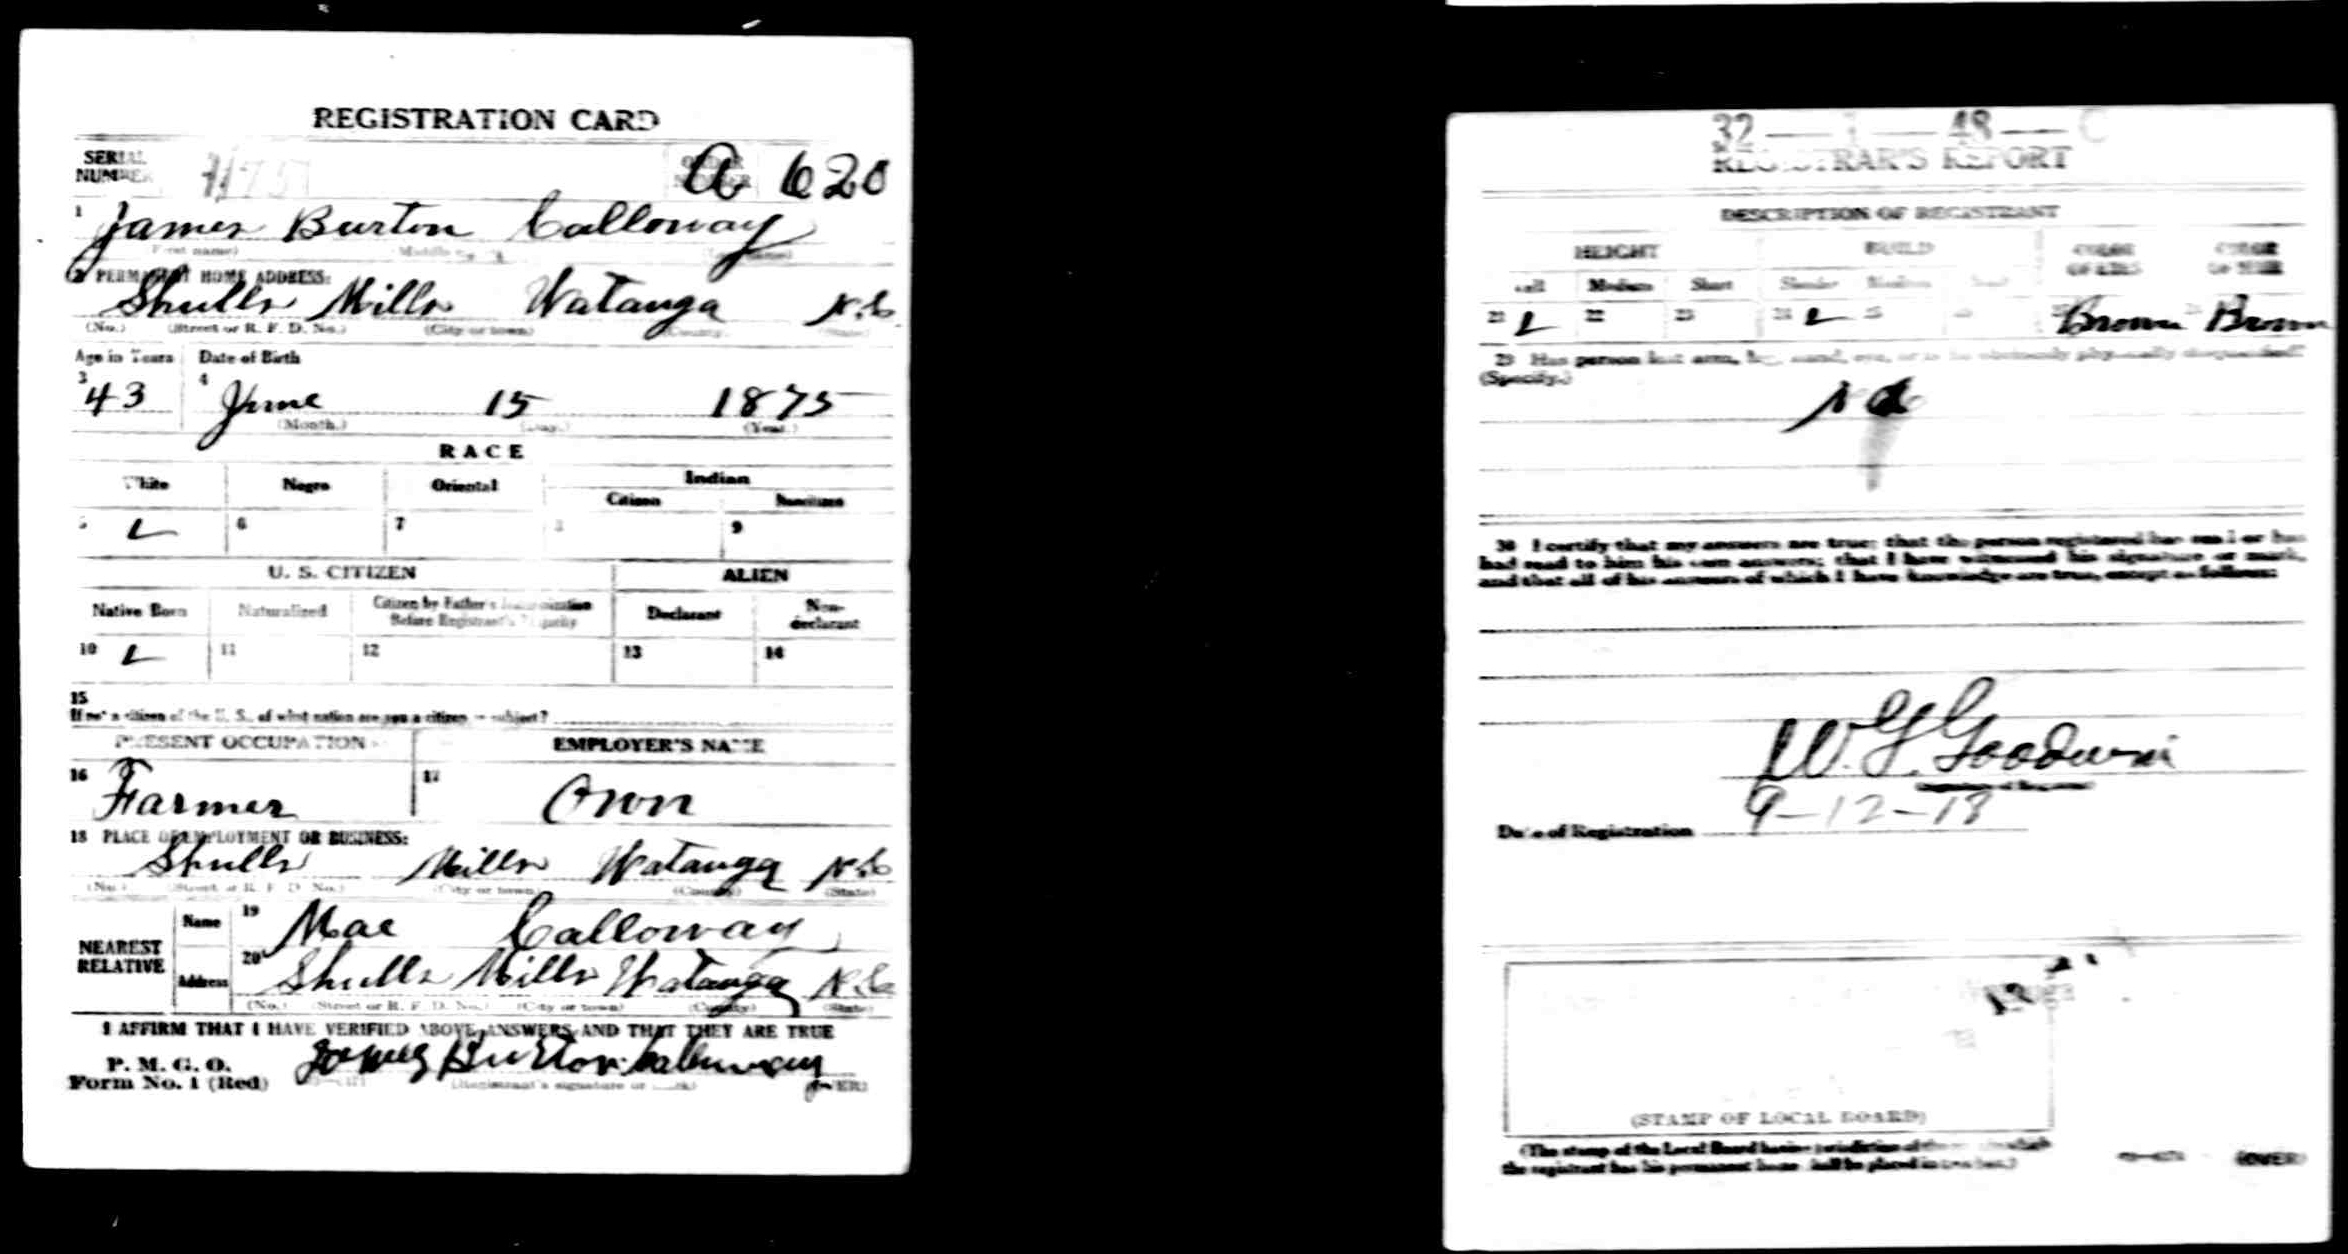 REGISTRATION CARD
SERIAL NUMBER A 620
1 James Burton Calloway
(First name) (Middle
2 PERMANENT HOME ADDRESS:
Shulls Mills Watanga N.C.
(No.) (Street or R. F. D. No.) (City or town) (County) (State)
Age in Years Date of Birth
3 43 4 June 15 1875
(Month.) (Day.) (Year.)
RACE
White Negro Oriental Indian
Citizen Noncitizen
5 6 7 9
U. S. CITIZEN ALIEN
Native Born Naturalized Citizen by Father's Naturalization Before Registrant's Majority Declarant Non-declarant
10 11 12 13 14
15
If not a citizen of the U. S., of what nation are you a citizen or subject?
PRESENT OCCUPATION EMPLOYER'S NAME
16 Farmer 17 Own
18 PLACE OF EMPLOYMENT OR BUSINESS:
Shulls Mills Watanga N.C.
(No.) (Street or R. F. D. No.) (City or town) (County) (State)
NEAREST RELATIVE Name 19 Mae Calloway
Address 20 Shulls Mills Watanga N.C.
(No.) (Street or R. F. D. No.) (City or town) (County) (State)
I AFFIRM THAT I HAVE VERIFIED ABOVE ANSWERS AND THAT THEY ARE TRUE
P. M. G. O.
Form No. 1 (Red) James Burton Calloway
(Registrant's signature or mark) (OVER)
32 — 1 — 48 — C
REGISTRAR'S REPORT
DESCRIPTION OF REGISTRANT
HEIGHT BUILD COLOR OF EYES COLOR OF HAIR
Tall Medium Short Slender Medium Stout
21 22 23 24 25 Brown Brown
29 Has person lost arm, leg, hand, eye, or is he obviously physically disqualified?
(Specify.)
No
30 I certify that my answers are true; that the person registered has read or has
had read to him his own answers; that I have witnessed his signature or mark,
and that all of his answers of which I have knowledge are true, except as follows:
W. G. Goodwin
(Signature of Registrar)
Date of Registration 9-12-18
(STAMP OF LOCAL BOARD)
(The stamp of the Local Board having jurisdiction of the area in which
the registrant has his permanent home shall be placed in this box.)
(OVER)